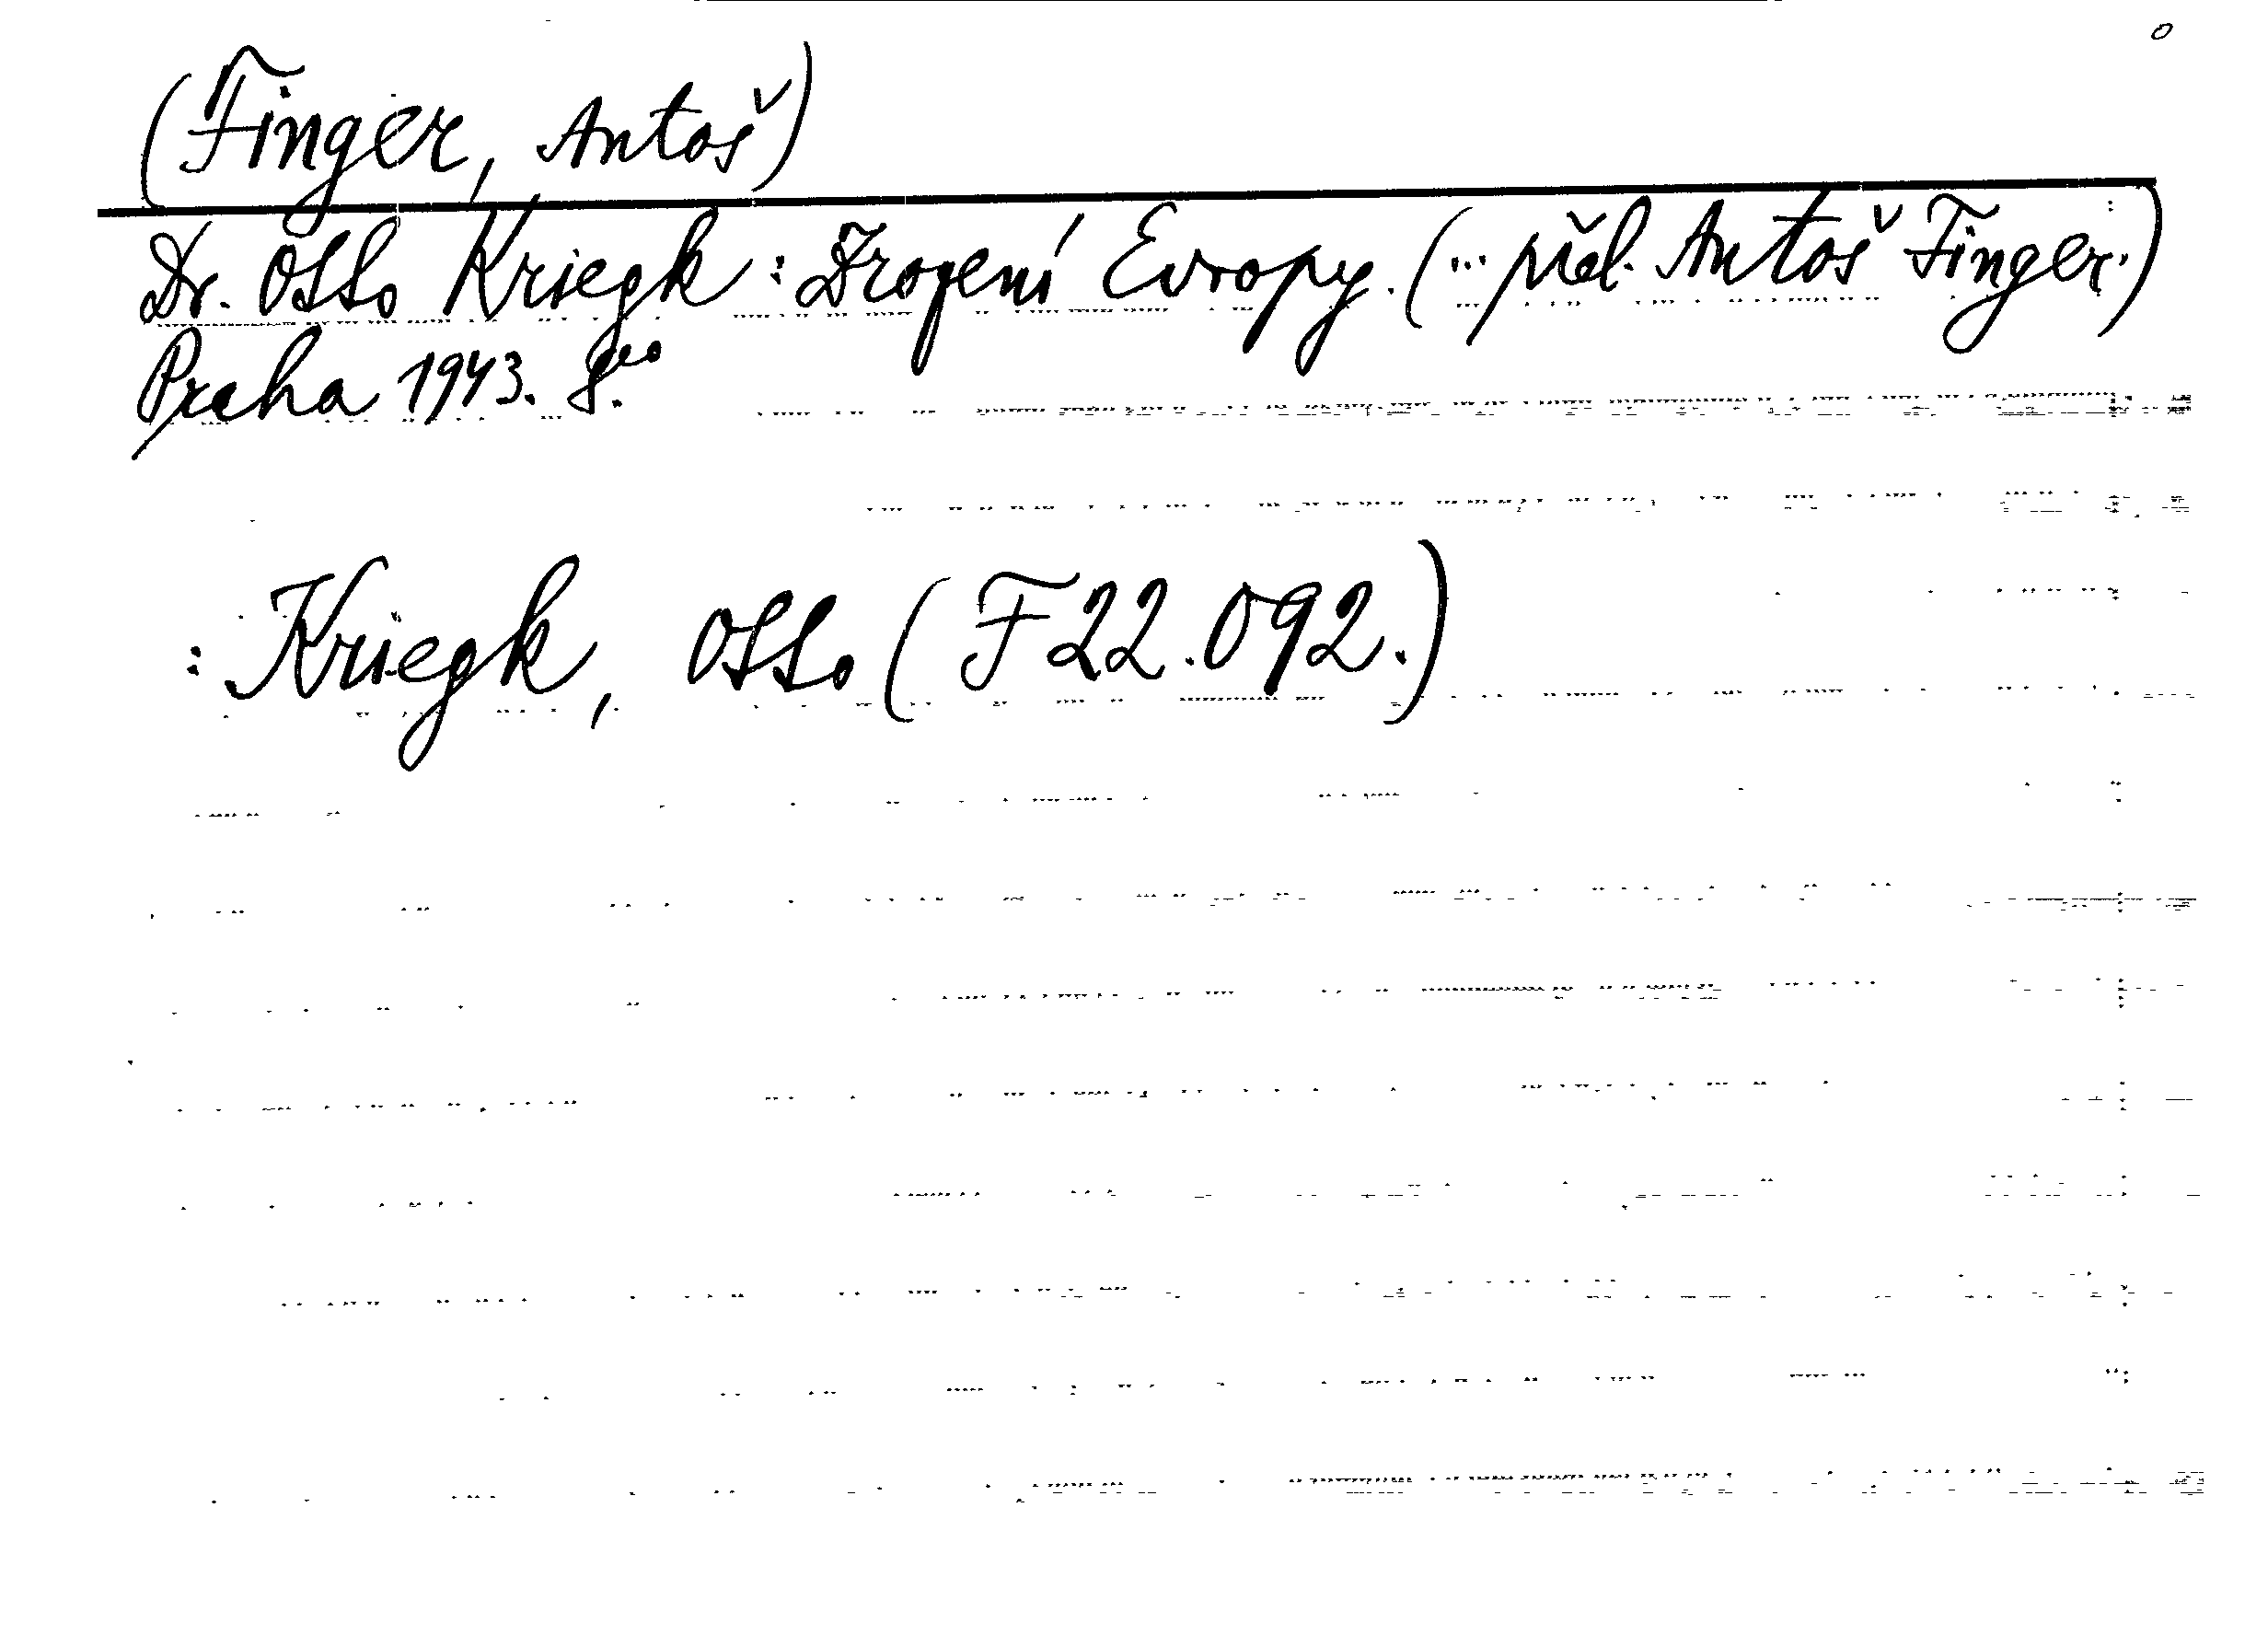 0
(Finger, Antoš)
Dr. Otto Kriegk: Zrození Evropy. (... přel. Antoš Finger.)
Praha 1943. 8.vo
: Kriegk, Otto (F 22.092.)